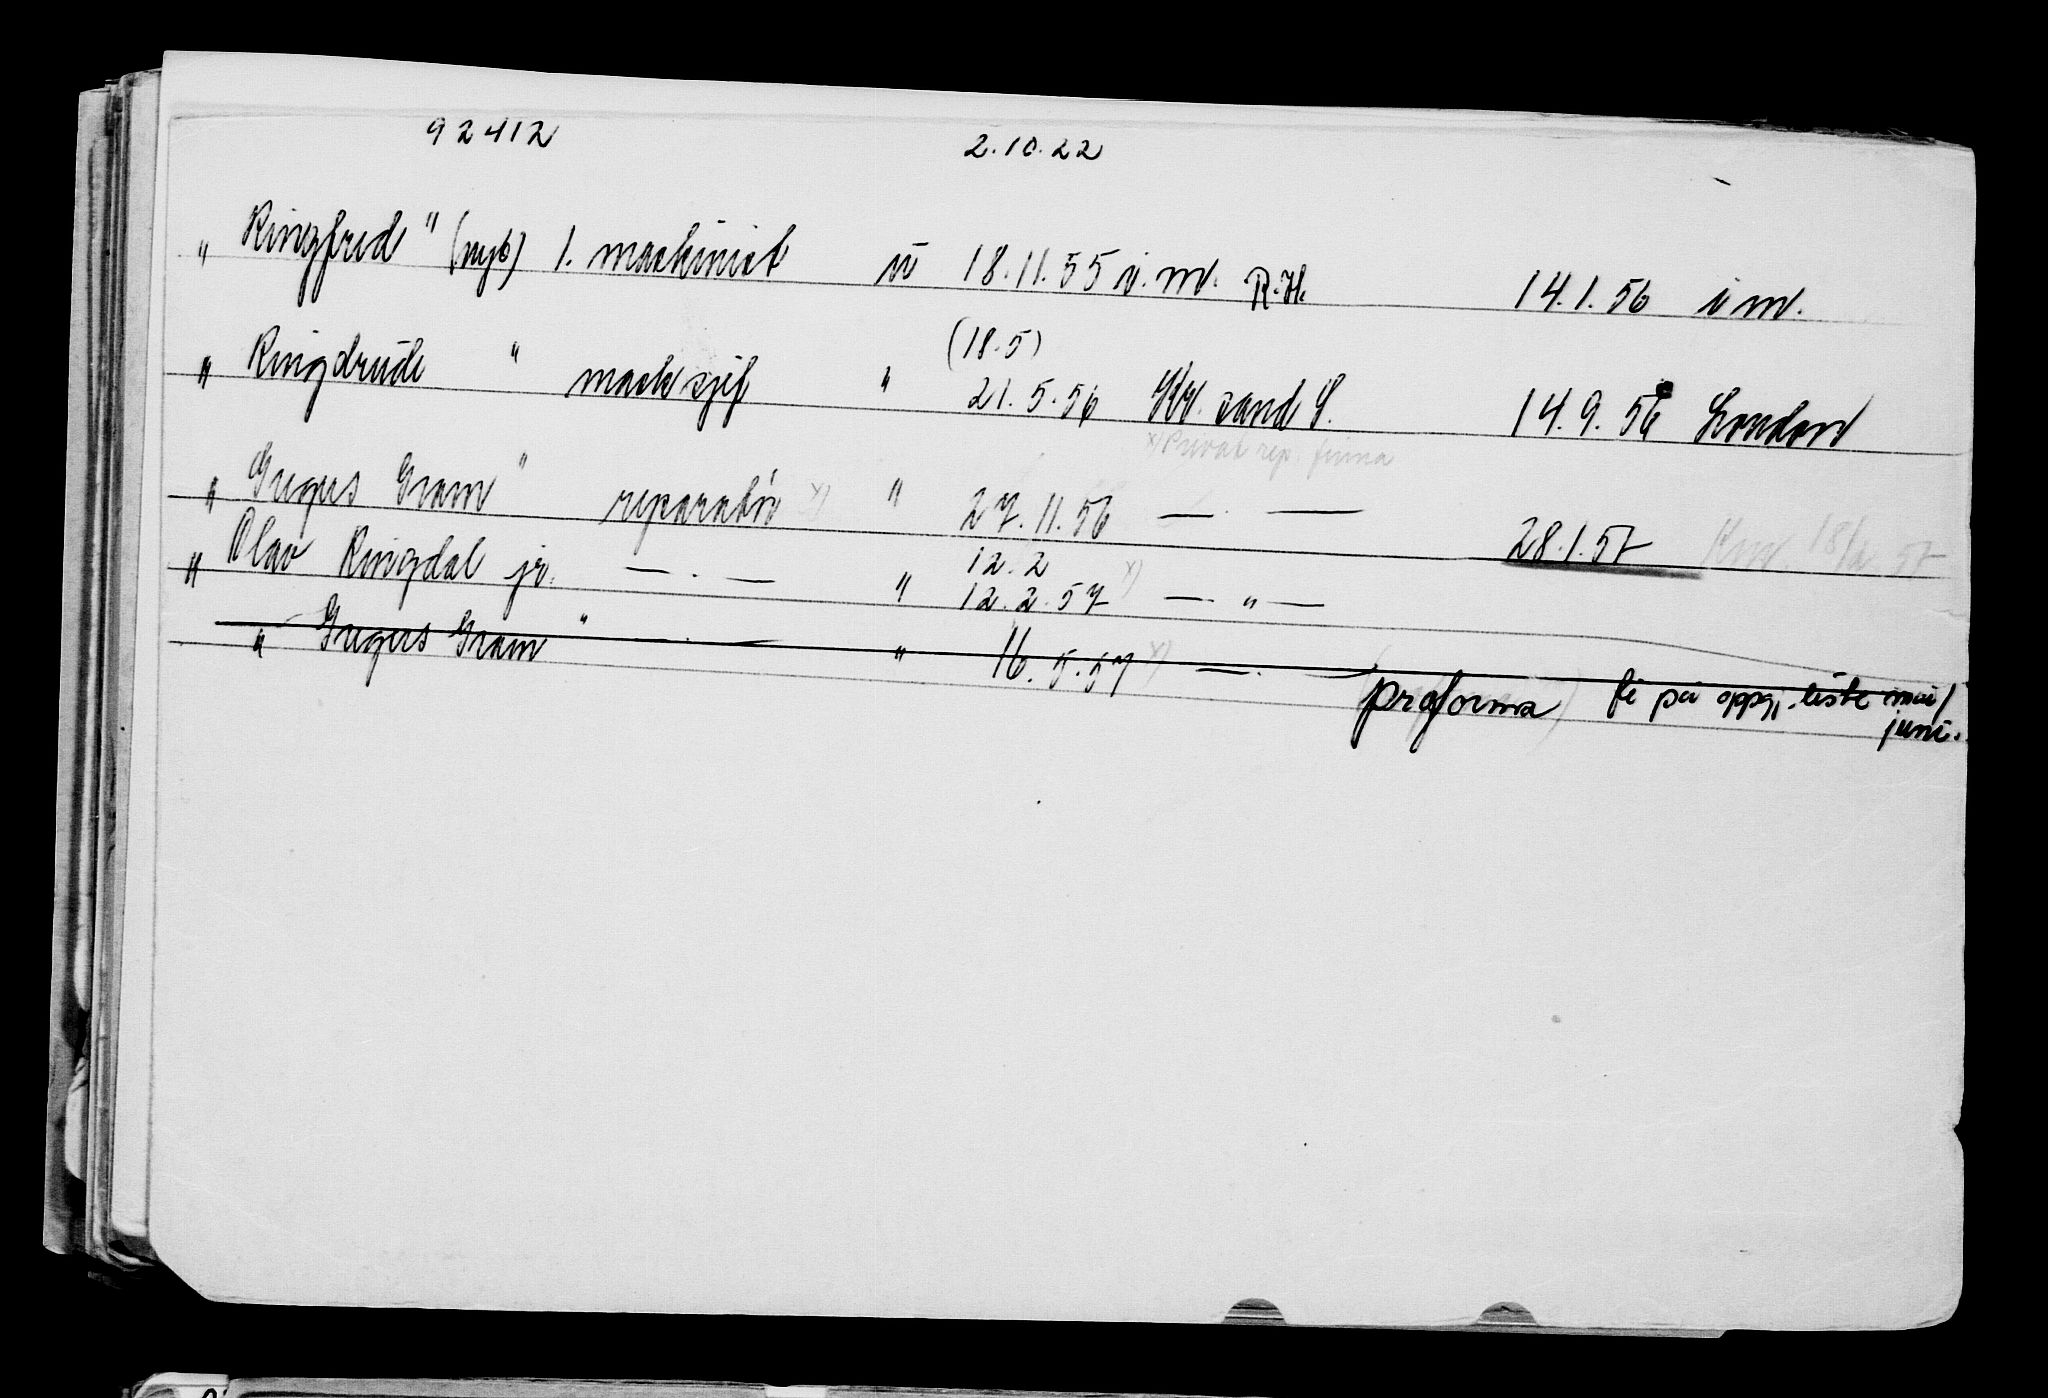 92412 2.10.22
" Ringfred " (nyb) 1. maskinist u 18.11.55 u.m. R.H. 14.1.56 u m.
(18.5)
" Ringdrude " mask sjef " 21.5.56 Kr. sand S. 14.9.56 London
x) Privat rep. firma
" Gregers Gram " reparatør x) " 27.11.56 — . — 28.1.57
12.2
" Olav Ringdal jr. — . — " 12.2.57 x) — " —
" Gregers Gram " — . — " 16.5.57 x) — . — proforma) på oppg. liste mai/
juni.